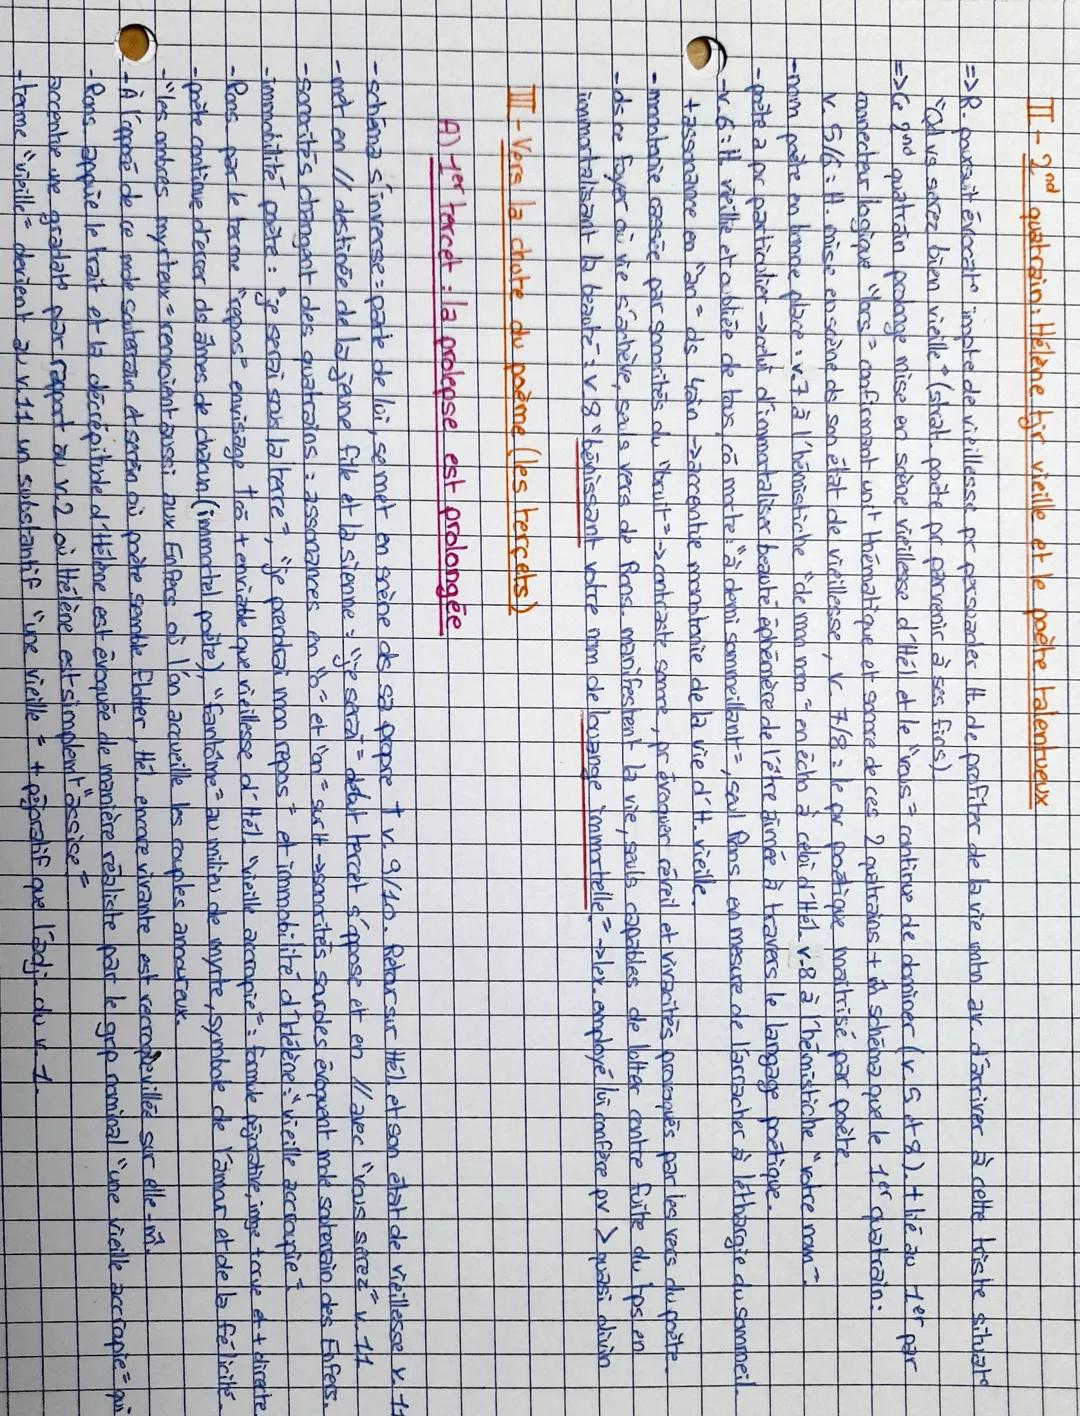 II - 2nd quatrain : Hélène tjr vieille et le poète talentueux
=> R. poursuit évocat° impte de vieillesse pr persuader H. de profiter de la vie mtn av. d'arriver à cette triste situat°
"Qd vs serez bien vieille" (strat. poète pr parvenir à ses fins)
=> Ce 2nd quatrain prolonge mise en scène vieillesse d'Hél. et le "vous" continue de dominer (v. 5 et 8). + lié au 1er par
connecteur logique "lors" confirmant unit thématique et sonore de ces 2 quatrains + m̂ schéma que le 1er quatrain :
v. 5/6 : H. mise en scène ds son état de vieillesse, v. 7/8 : le pv poétique maîtrisé par poète.
- nom poète en bonne place : v. 7 à l'hémistiche "de mon nom" en écho à celui d'Hél. v. 8 à l'hémistiche "votre nom".
- poète a pv particulier -> celui d'immortaliser beauté éphémère de l'être aimée à travers le langage poétique.
- v. 6 : H vieille et oubliée de tous, cô morte : "à demi sommeillant", seul Rons. en mesure de l'arracher à léthargie du sommeil
+ assonance en "an" ds 4ain -> accentue monotonie de la vie d'H. vieille.
- monotonie cassée par sonorités du "bruit" -> contraste sonore, pr évoquer réveil et vivacités provoqués par les vers du poète.
- ds ce foyer où vie s'achève, seuls vers de Rons. manifestent la vie, seuls capables de lutter contre fuite du tps en
immortalisant la beauté : v. 8 "bénissant votre nom de louange immortelle" -> lex. employé lui confère pv > quasi divin
III - Vers la chute du poème (les tercets)
A) 1er tercet : la prolepse est prolongée
- schéma s'inverse : parle de lui, se met en scène ds sa propre † v. 9/10. Retour sur Hél. et son état de vieillesse v. 11
- met en // destinée de la jeune fille et la sienne : "je serai" début tercet s'oppose et en // avec "vous serez" v. 11
- sonorités changent des quatrains : assonances en "o" et "on" sur H -> sonorités sourdes évoquent mde souterrain des Enfers.
- immobilité poète : "je serai sous la terre", "je prendrai mon repos" et immobilité d'Hélène : "vieille accroupie"
- Rons. par le terme "repos" envisage † cô + enviable que vieillesse d'Hél. "vieille accroupie" : formule péjorative, image + crue et + directe
- poète continue d'errer ds âmes de chacun (immortel poète), "fantôme" au milieu de myrte, symbole de l'amour et de la félicité.
- "les ombres myrteux" renvoient aussi aux Enfers où l'on accueille les couples amoureux.
- À l'opposé de ce mde souterrain et serein où poète semble flotter, Hél. encore vivante est recroquevillée sur elle-m̂.
- Rons. appuie le trait et la décrépitude d'Hélène est évoquée de manière réaliste par le grp nominal "une vieille accroupie" qui
accentue une gradat° par rapport au v. 2 où Hélène est simplemt "assise"
- terme "vieille" devient au v. 11 un substantif "une vieille" + péjoratif que l'adj. du v. 1.